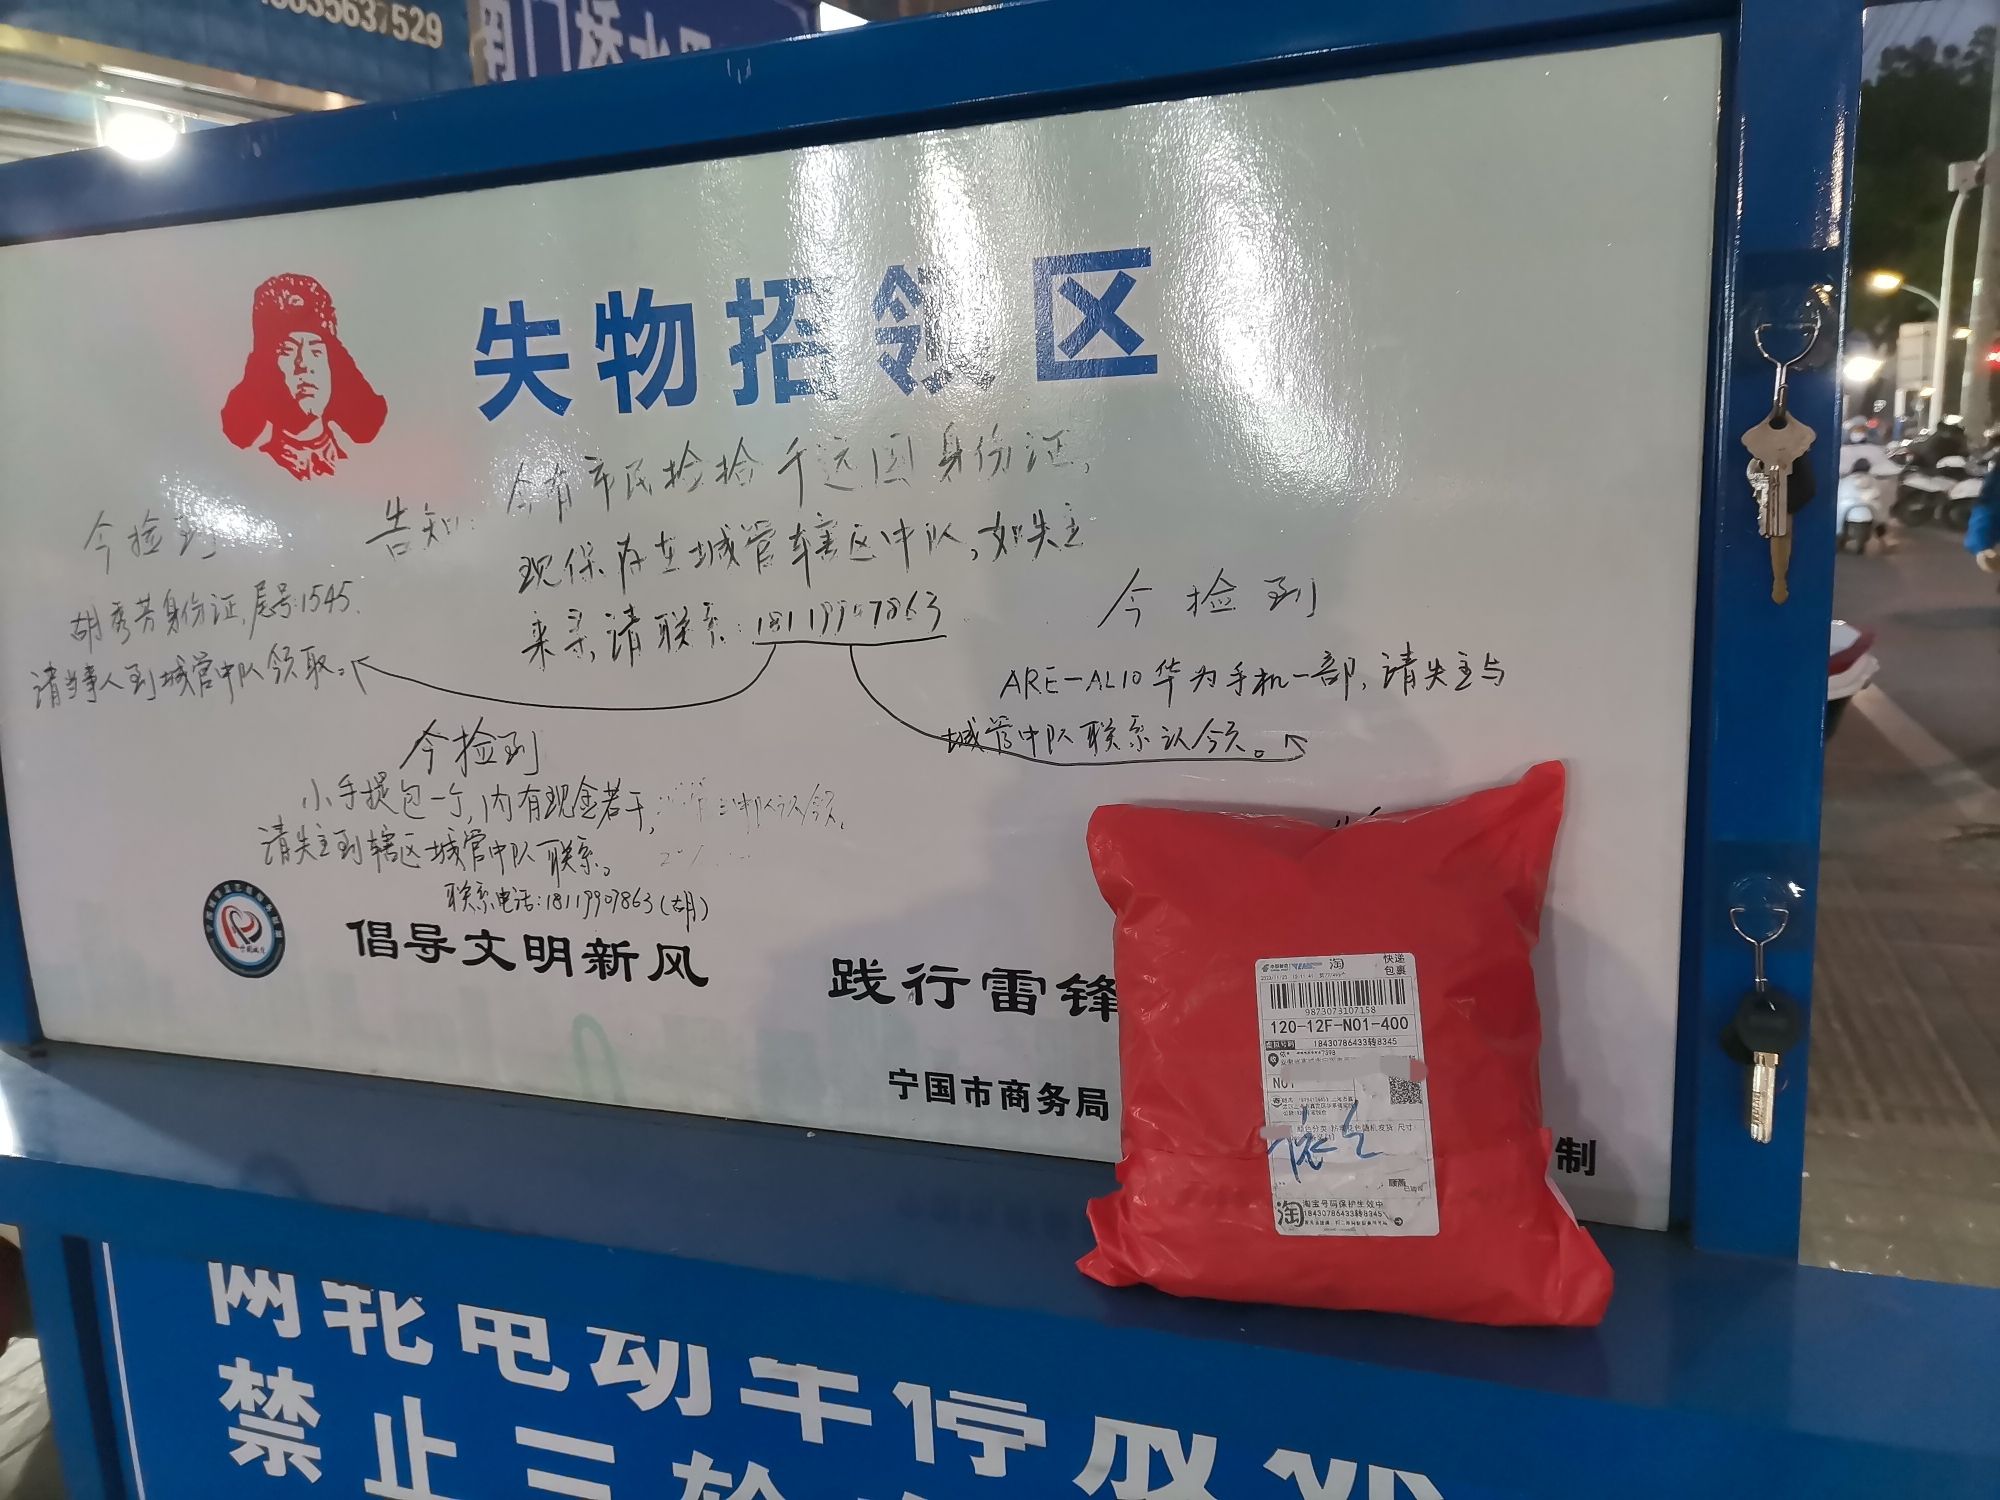 35637529
失物招领区
告知：今有市民捡拾千远国身份证，
现保存在城管辖区中队，如失主
来寻，请联系：18119907863
今捡到
胡秀芳身份证，尾号：1545.
请当事人到城管中队领取。
今捡到
ARE-AL10华为手机一部，请失主与
城管中队联系认领。
今捡到
小手提包一个，内有现金若干，
请失主到辖区城管中队联系。
联系电话：18119907863（胡）
倡导文明新风
践行雷锋
宁国市商务局
制
淘
快递
包裹
9873073107158
120-12F-N01-400
虚拟号码 18430786433转8345
N01
淘宝号码保护生效中
18430786433转8345
两轮电动车停放
禁止三轮